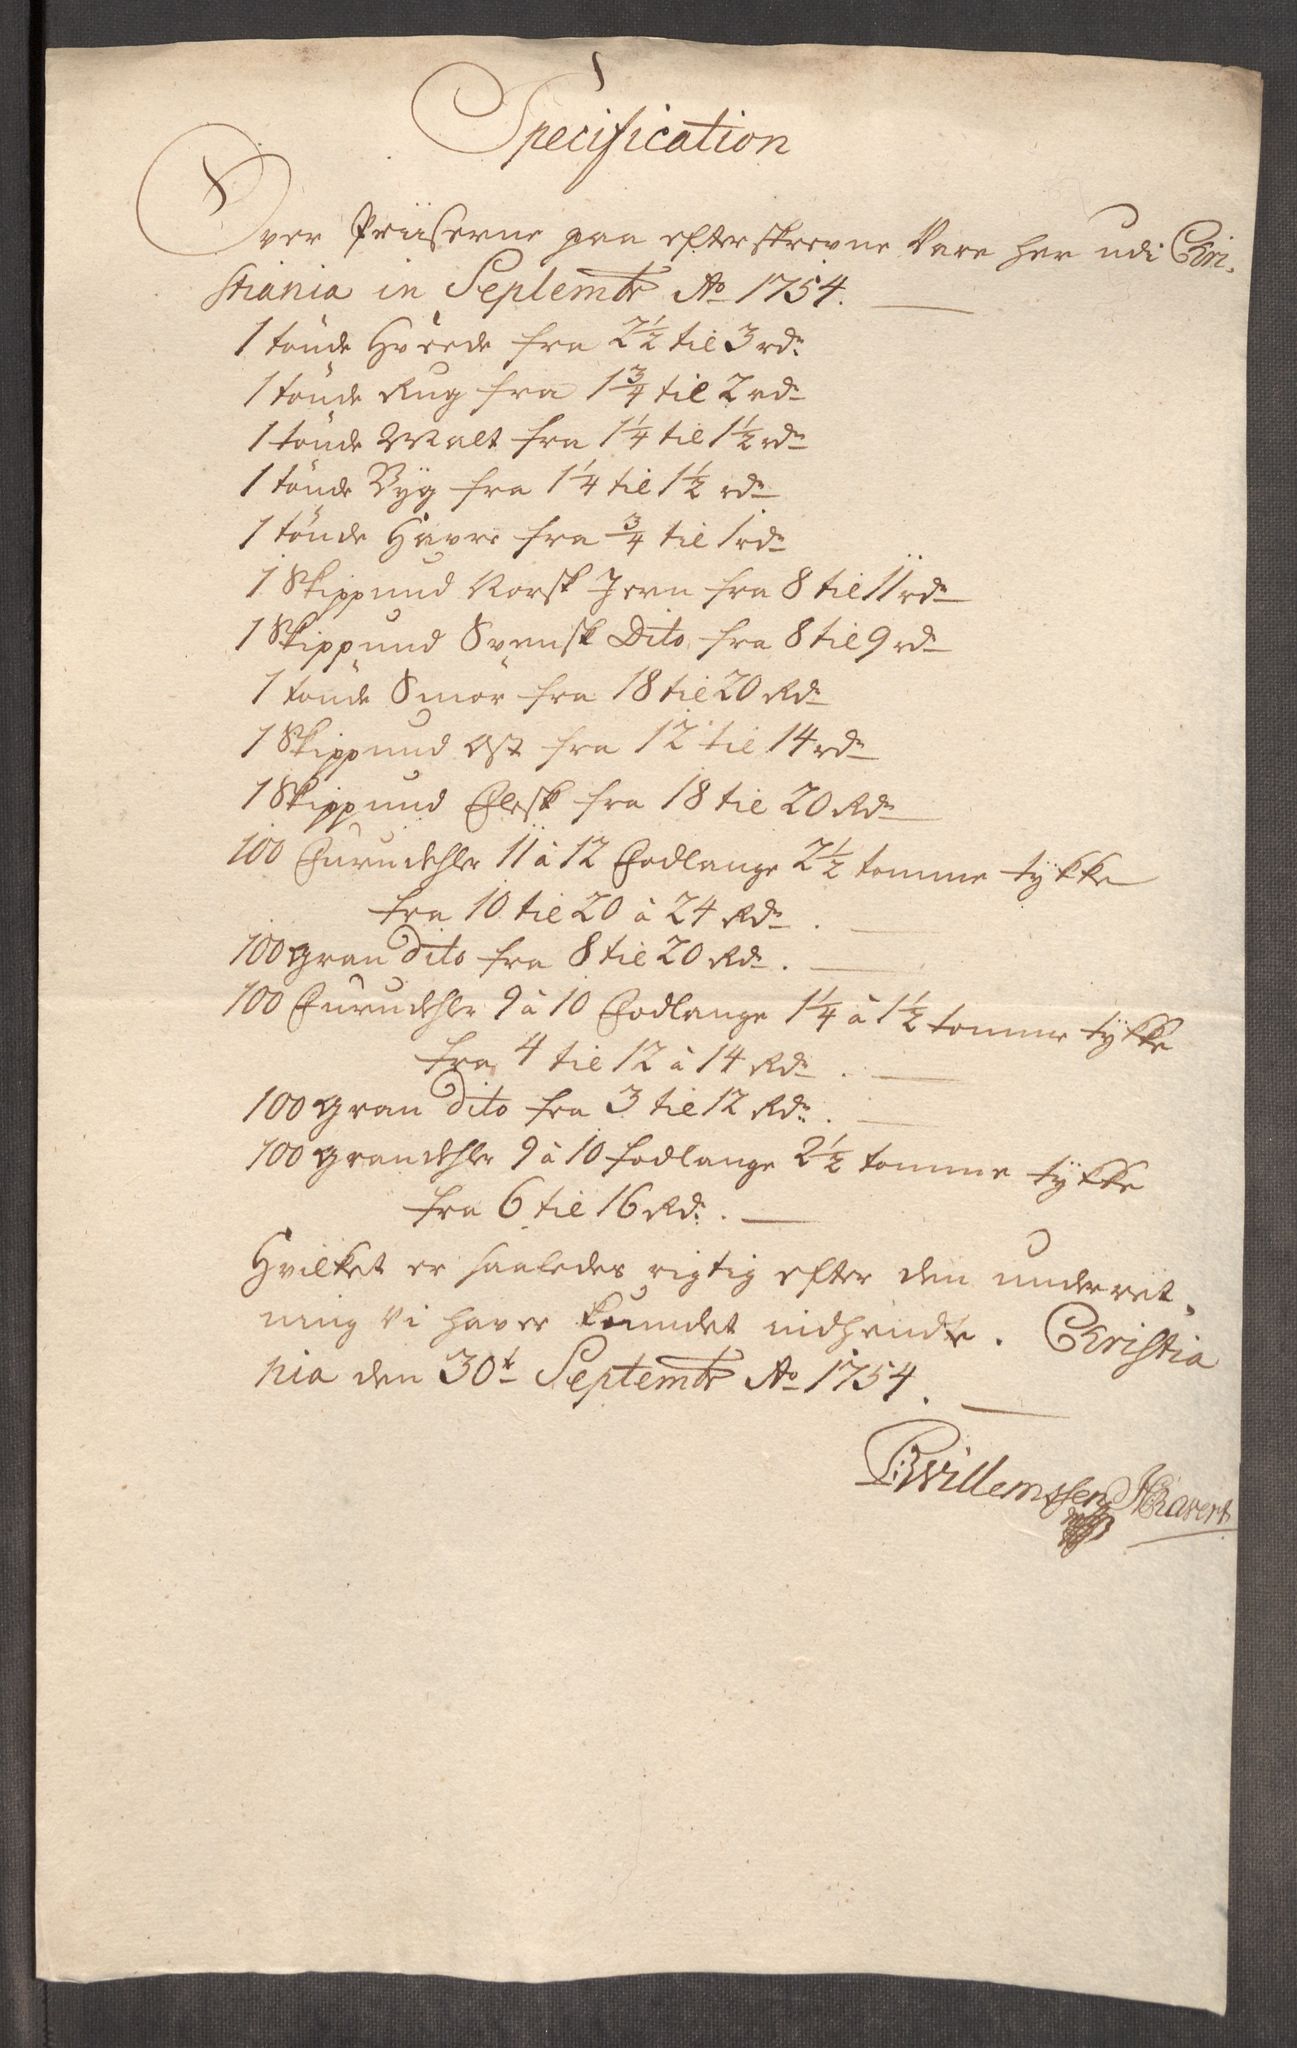 Specification
Over Priiserne paa efterskrevne Vare her udi Chri-
stiania in Septembr Ao 1754.
1 tönde Hvëede fra 2½ til 3 rdr
1 tönde Rug fra 1¾ til 2 rdr
1 tönde Malt fra 1¼ til 1½ rdr
1 tönde Byg fra 1¼ til 1½ rdr
1 tönde Havre fra ¾ til 1 rdr
1 Skippund Norsk Jern fra 8 til 11 rdr
1 Skippund Svensk Dito fra 8 til 9 rdr
1 tönde Smör fra 18 til 20 Rdr
1 Skippund Ost fra 12 til 14 rdr
1 Skippund Flesk fra 18 til 20 Rdr
100 Furudehler 11 à 12 Fodlange 2½ tomme tÿkke
fra 10 til 20 à 24 Rdr.
100 gran dito fra 8 til 20 Rdr.
100 Furudehler 9 à 10 Fodlange 1¼ à 1½ tomme tÿkke
fra 4 til 12 à 14 Rdr.
100 gran dito fra 3 til 12 Rdr.
100 grandehler 9 à 10 fodlange 2½ tomme tÿkke
fra 6 til 16 Rdr.
Hvilket er saaledes rigtig efter den underret-
ning Vi haver kundet indhendte. Christia
nia den 30t Septembr Ao 1754.
Willemssen